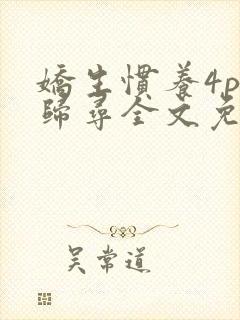 嬌生慣養4p
歸尋全文免
吴常道